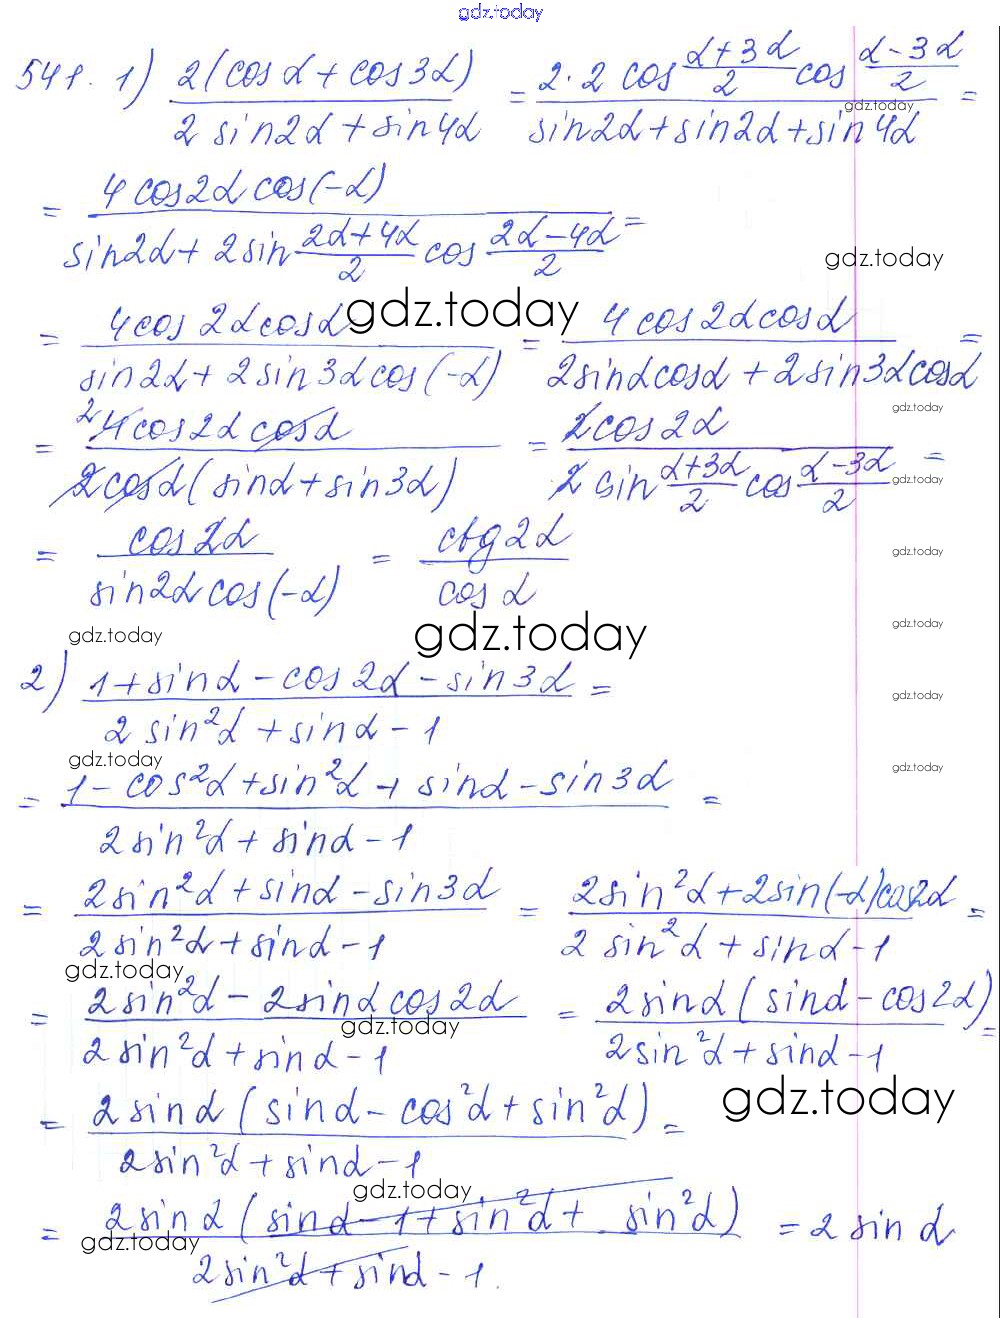 gdz.today
541. 1) 2(cos α + cos 3α) / (2 sin2α + sin4α) = 2·2 cos (α+3α)/2 cos (α−3α)/2 / (sin2α + sin2α + sin4α) =
gdz.today
= 4cos2α cos(−α) / (sin2α + 2sin (2α+4α)/2 cos (2α−4α)/2) =
gdz.today
= 4cos2αcosα / (sin2α + 2sin3αcos(−α)) = 4cos2αcosα / (2sinαcosα + 2sin3αcosα) =
gdz.today
gdz.today
= 2 4cos2αcosα / (2cosα(sinα + sin3α)) = 2cos2α / (2 sin (α+3α)/2 cos (α−3α)/2) =
gdz.today
= cos2α / (sin2αcos(−α)) = ctg2α / cosα
gdz.today
gdz.today
gdz.today
gdz.today
2) (1 + sinα − cos2α − sin3α) / (2sin²α + sinα − 1) =
gdz.today
gdz.today
gdz.today
= (1 − cos²α + sin²α + sinα − sin3α) / (2sin²α + sinα − 1) =
= (2sin²α + sinα − sin3α) / (2sin²α + sinα − 1) = (2sin²α + 2sin(−α)cos2α) / (2sin²α + sinα − 1) =
gdz.today
= (2sin²α − 2sinαcos2α) / (2sin²α + sinα − 1) = 2sinα(sinα − cos2α) / (2sin²α + sinα − 1) =
gdz.today
gdz.today
= 2sinα(sinα − cos²α + sin²α) / (2sin²α + sinα − 1) =
gdz.today
= 2sinα(sinα − 1 + sin²α + sin²α) / (2sin²α + sinα − 1) = 2sinα
gdz.today